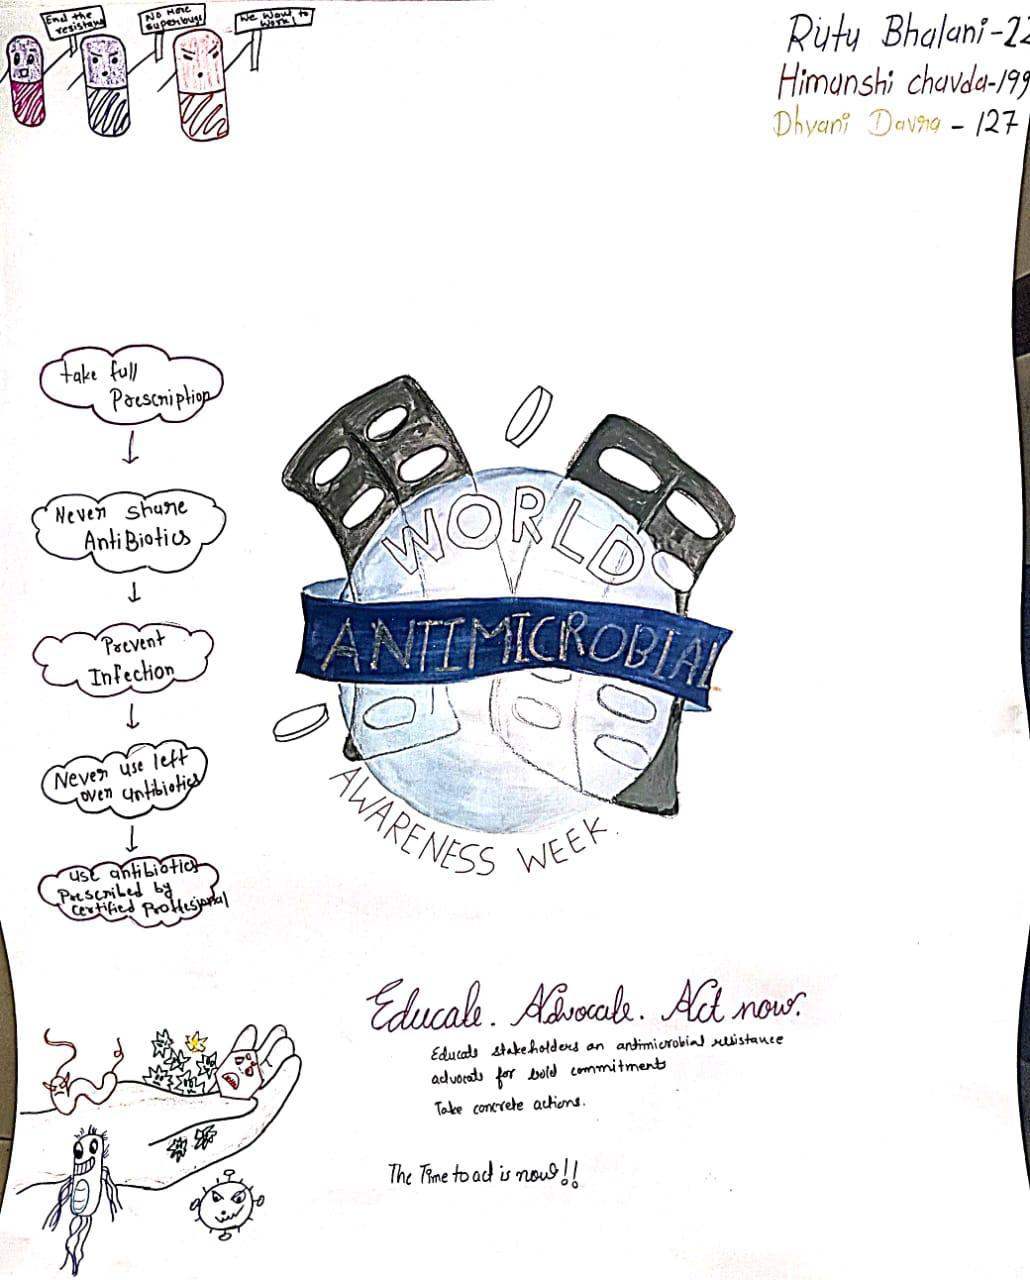 End the
resistance
No More
superbugs
We Want to
Work!
Rutu Bhalani-22
Himanshi chavda-199
Dhyani Davra - 127
take full
Prescription
Never share
AntiBiotics
Prevent
Infection
Never use left
over antibiotics
use antibiotics
Prescribed by
certified Proffesional
WORLD
ANTIMICROBIAL
AWARENESS WEEK.
Educate. Advocate. Act now.
Educate stakeholders on antimicrobial resistance
advocate for bold commitments
Take concrete actions.
The Time to act is now!!